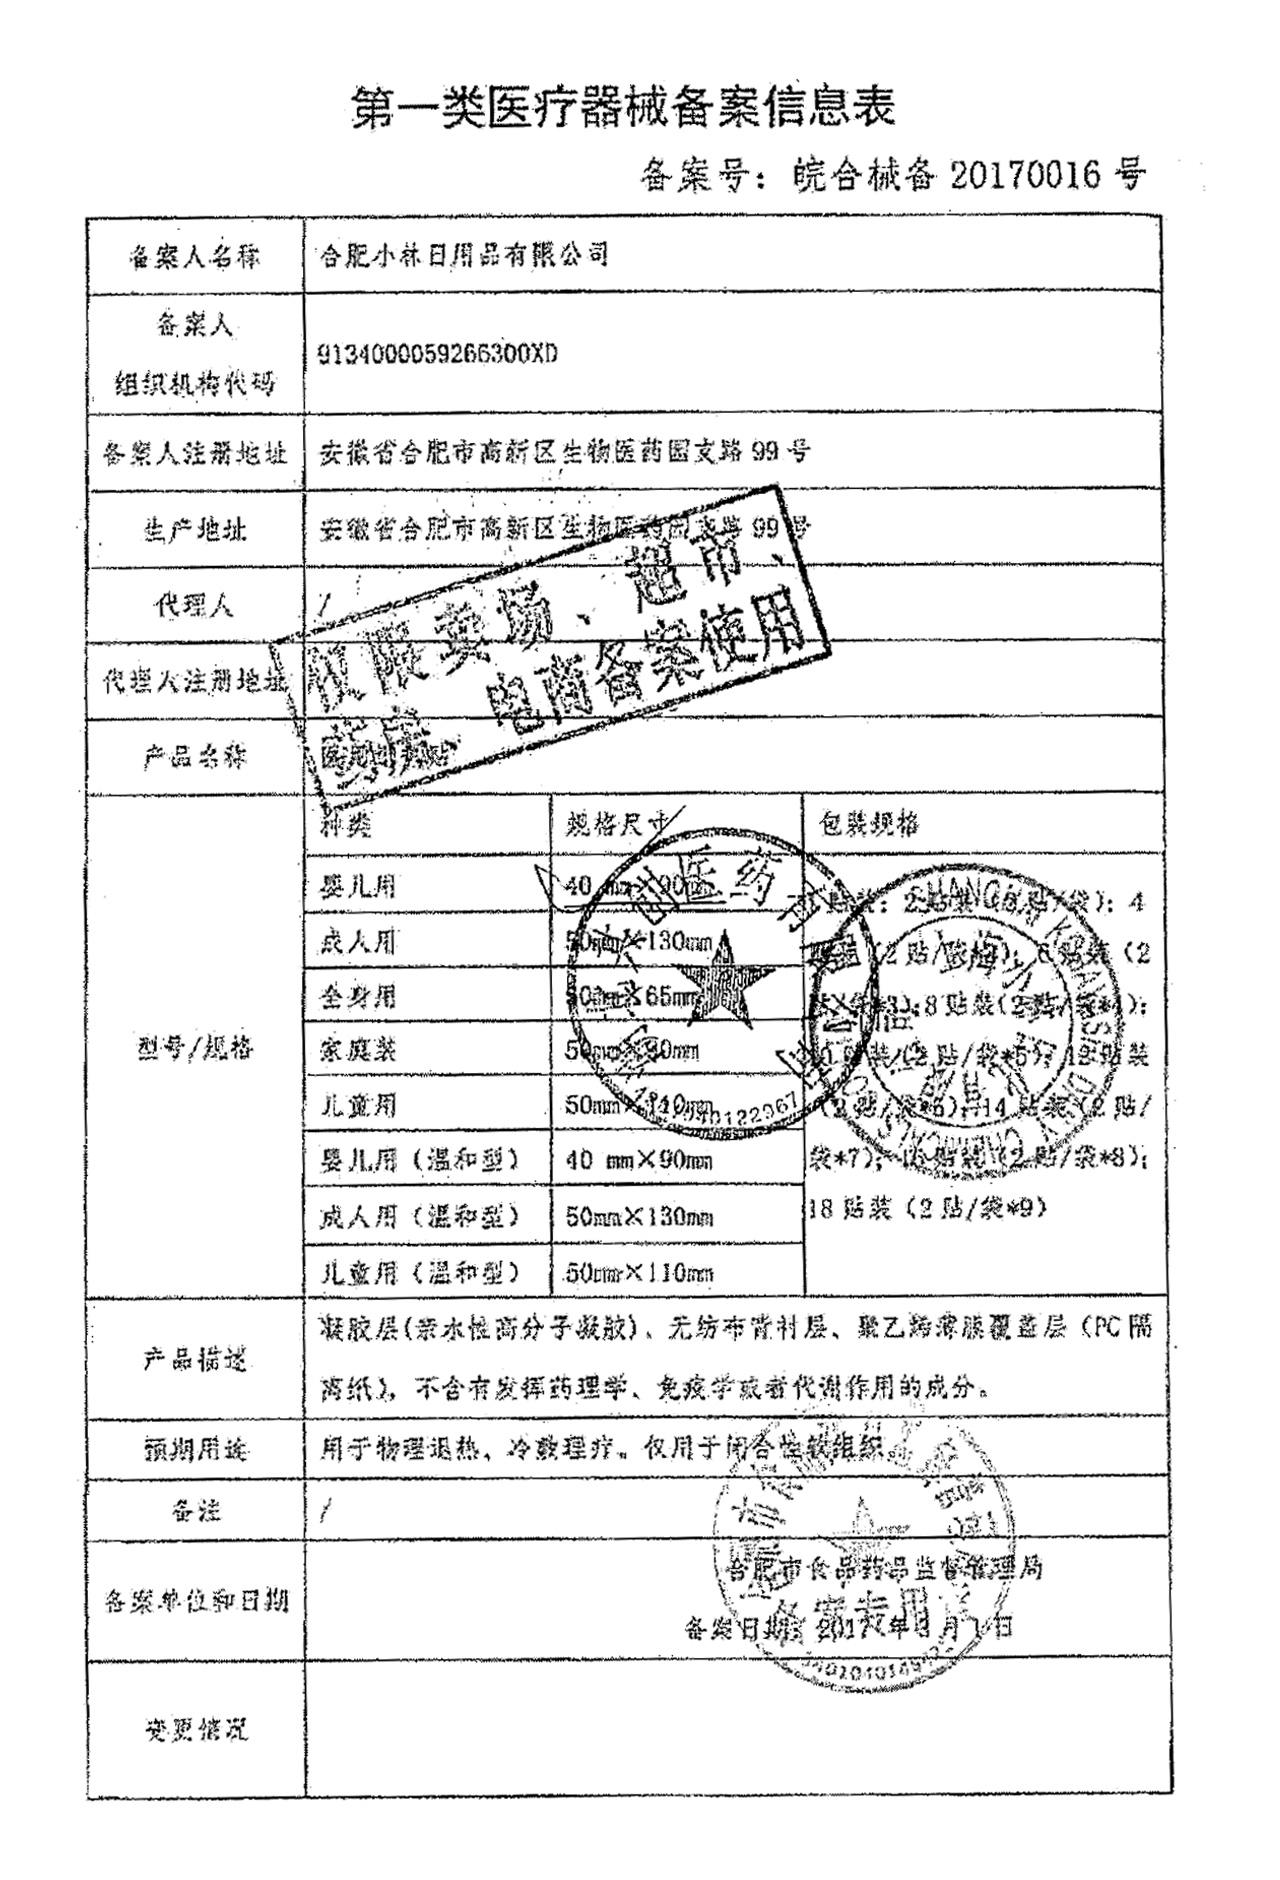 第一类医疗器械备案信息表
备案号：皖合械备 20170016 号
备案人名称 合肥小林日用品有限公司
备案人
组织机构代码 9134000059266300XD
备案人注册地址 安徽省合肥市高新区生物医药园支路 99 号
生产地址 安徽省合肥市高新区生物医药园支路 99 号
代理人 /
代理人注册地址
仅限卖场、超市、
药店、电商备案使用
产品名称
型号/规格
种类 规格尺寸 包装规格
婴儿用 40 mm×90mm
成人用 50mm×130mm
全身用 50mm×65mm
家庭装 50mm×90mm
儿童用 50mm×110mm
婴儿用（温和型） 40 mm×90mm
成人用（温和型） 50mm×130mm
儿童用（温和型） 50mm×110mm
贴装：2 贴装（ 贴/袋）；4
（2 贴/袋 ）；6 贴装（2
*3）；8 贴装（2 贴/袋*4）；
贴装（2 贴/袋*5）；12 贴装
（2 贴/袋*6）；14 贴装（2 贴/
袋*7）；16 贴装（2 贴/袋*8）；
18 贴装（2 贴/袋*9）
医药
SHANGHAI
DAILY CHEMICALS CO
产品描述 凝胶层（亲水性高分子凝胶）、无纺布背衬层、聚乙烯薄膜覆盖层（PC 隔
离纸），不含有发挥药理学、免疫学或者代谢作用的成分。
预期用途 用于物理退热、冷敷理疗。仅用于闭合性软组织
备注 /
备案单位和日期 合肥市食品药品监督管理局
备案专用章
备案日期：2017 年 月 日
变更情况